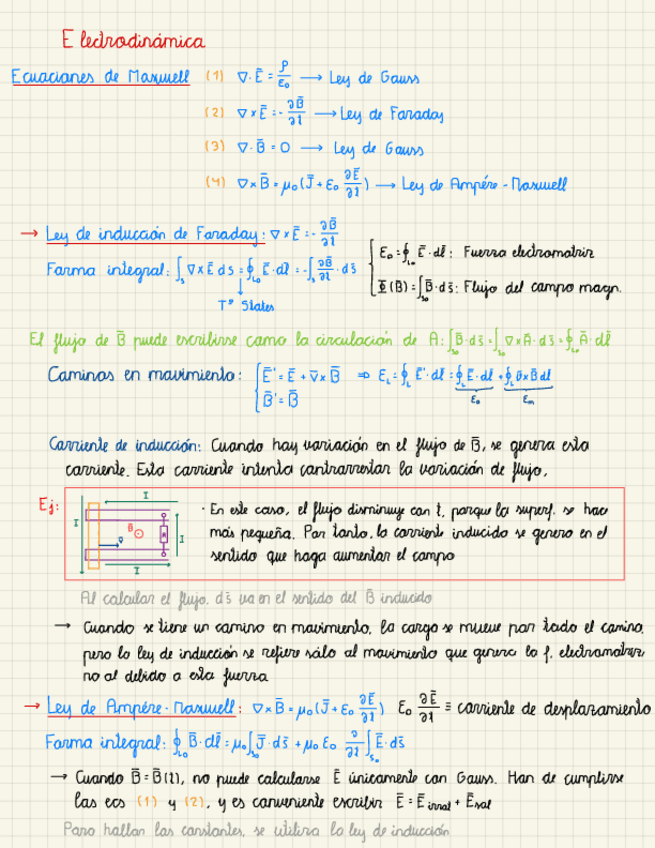 Electrodinámica
Ecuaciones de Maxwell (1) ∇·Ē = ρ/ε₀ → Ley de Gauss
(2) ∇×Ē = -∂B̄/∂t → Ley de Faraday
(3) ∇·B̄ = 0 → Ley de Gauss
(4) ∇×B̄ = μ₀(J̄ + ε₀ ∂Ē/∂t) → Ley de Ampére-Maxwell
→ Ley de inducción de Faraday: ∇×Ē = -∂B̄/∂t
Forma integral: ∫ₛ ∇×Ē ds = ∮_L₀ Ē·dl̄ = -∫ₛ ∂B̄/∂t · ds̄
Tª Stokes
ε₀ = ∮_L₀ Ē·dl̄: Fuerza electromotriz
Φ(B̄) = ∫_S₀ B̄·ds̄: Flujo del campo magn.
El flujo de B̄ puede escribirse como la circulación de A: ∫_S₀ B̄·ds̄ = ∫_S₀ ∇×Ā·ds̄ = ∮_L₀ Ā·dl̄
Caminos en movimiento: { Ē' = Ē + v̄×B̄ ⇒ ε_L = ∮_L Ē'·dl̄ = ∮_L Ē·dl̄ + ∮_L v̄×B̄ dl̄
B̄' = B̄ ε₀ εₘ
Corriente de inducción: Cuando hay variación en el flujo de B̄, se genera esta
corriente. Esta corriente intenta contrarrestar la variación de flujo.
Ej:
I
I
B̄
v
R
I
I
· En este caso, el flujo disminuye con t, porque la superf. se hace
más pequeña. Por tanto, la corriente inducida se genera en el
sentido que haga aumentar el campo
Al calcular el flujo, ds̄ va en el sentido del B̄ inducido
→ Cuando se tiene un camino en movimiento, la carga se mueve por todo el camino,
pero la ley de inducción se refiere sólo al movimiento que genera la f. electromotriz,
no al debido a esta fuerza
→ Ley de Ampére-Maxwell: ∇×B̄ = μ₀(J̄ + ε₀ ∂Ē/∂t) ε₀ ∂Ē/∂t ≡ corriente de desplazamiento
Forma integral: ∮_L₀ B̄·dl̄ = μ₀∫_S₀ J̄·ds̄ + μ₀ ε₀ ∂/∂t ∫_S₀ Ē·ds̄
→ Cuando B̄ = B̄(t), no puede calcularse Ē únicamente con Gauss. Han de cumplirse
las ecs (1) y (2), y es conveniente escribir Ē = Ē irrot + Ē sol
Para hallar las constantes, se utiliza la ley de inducción